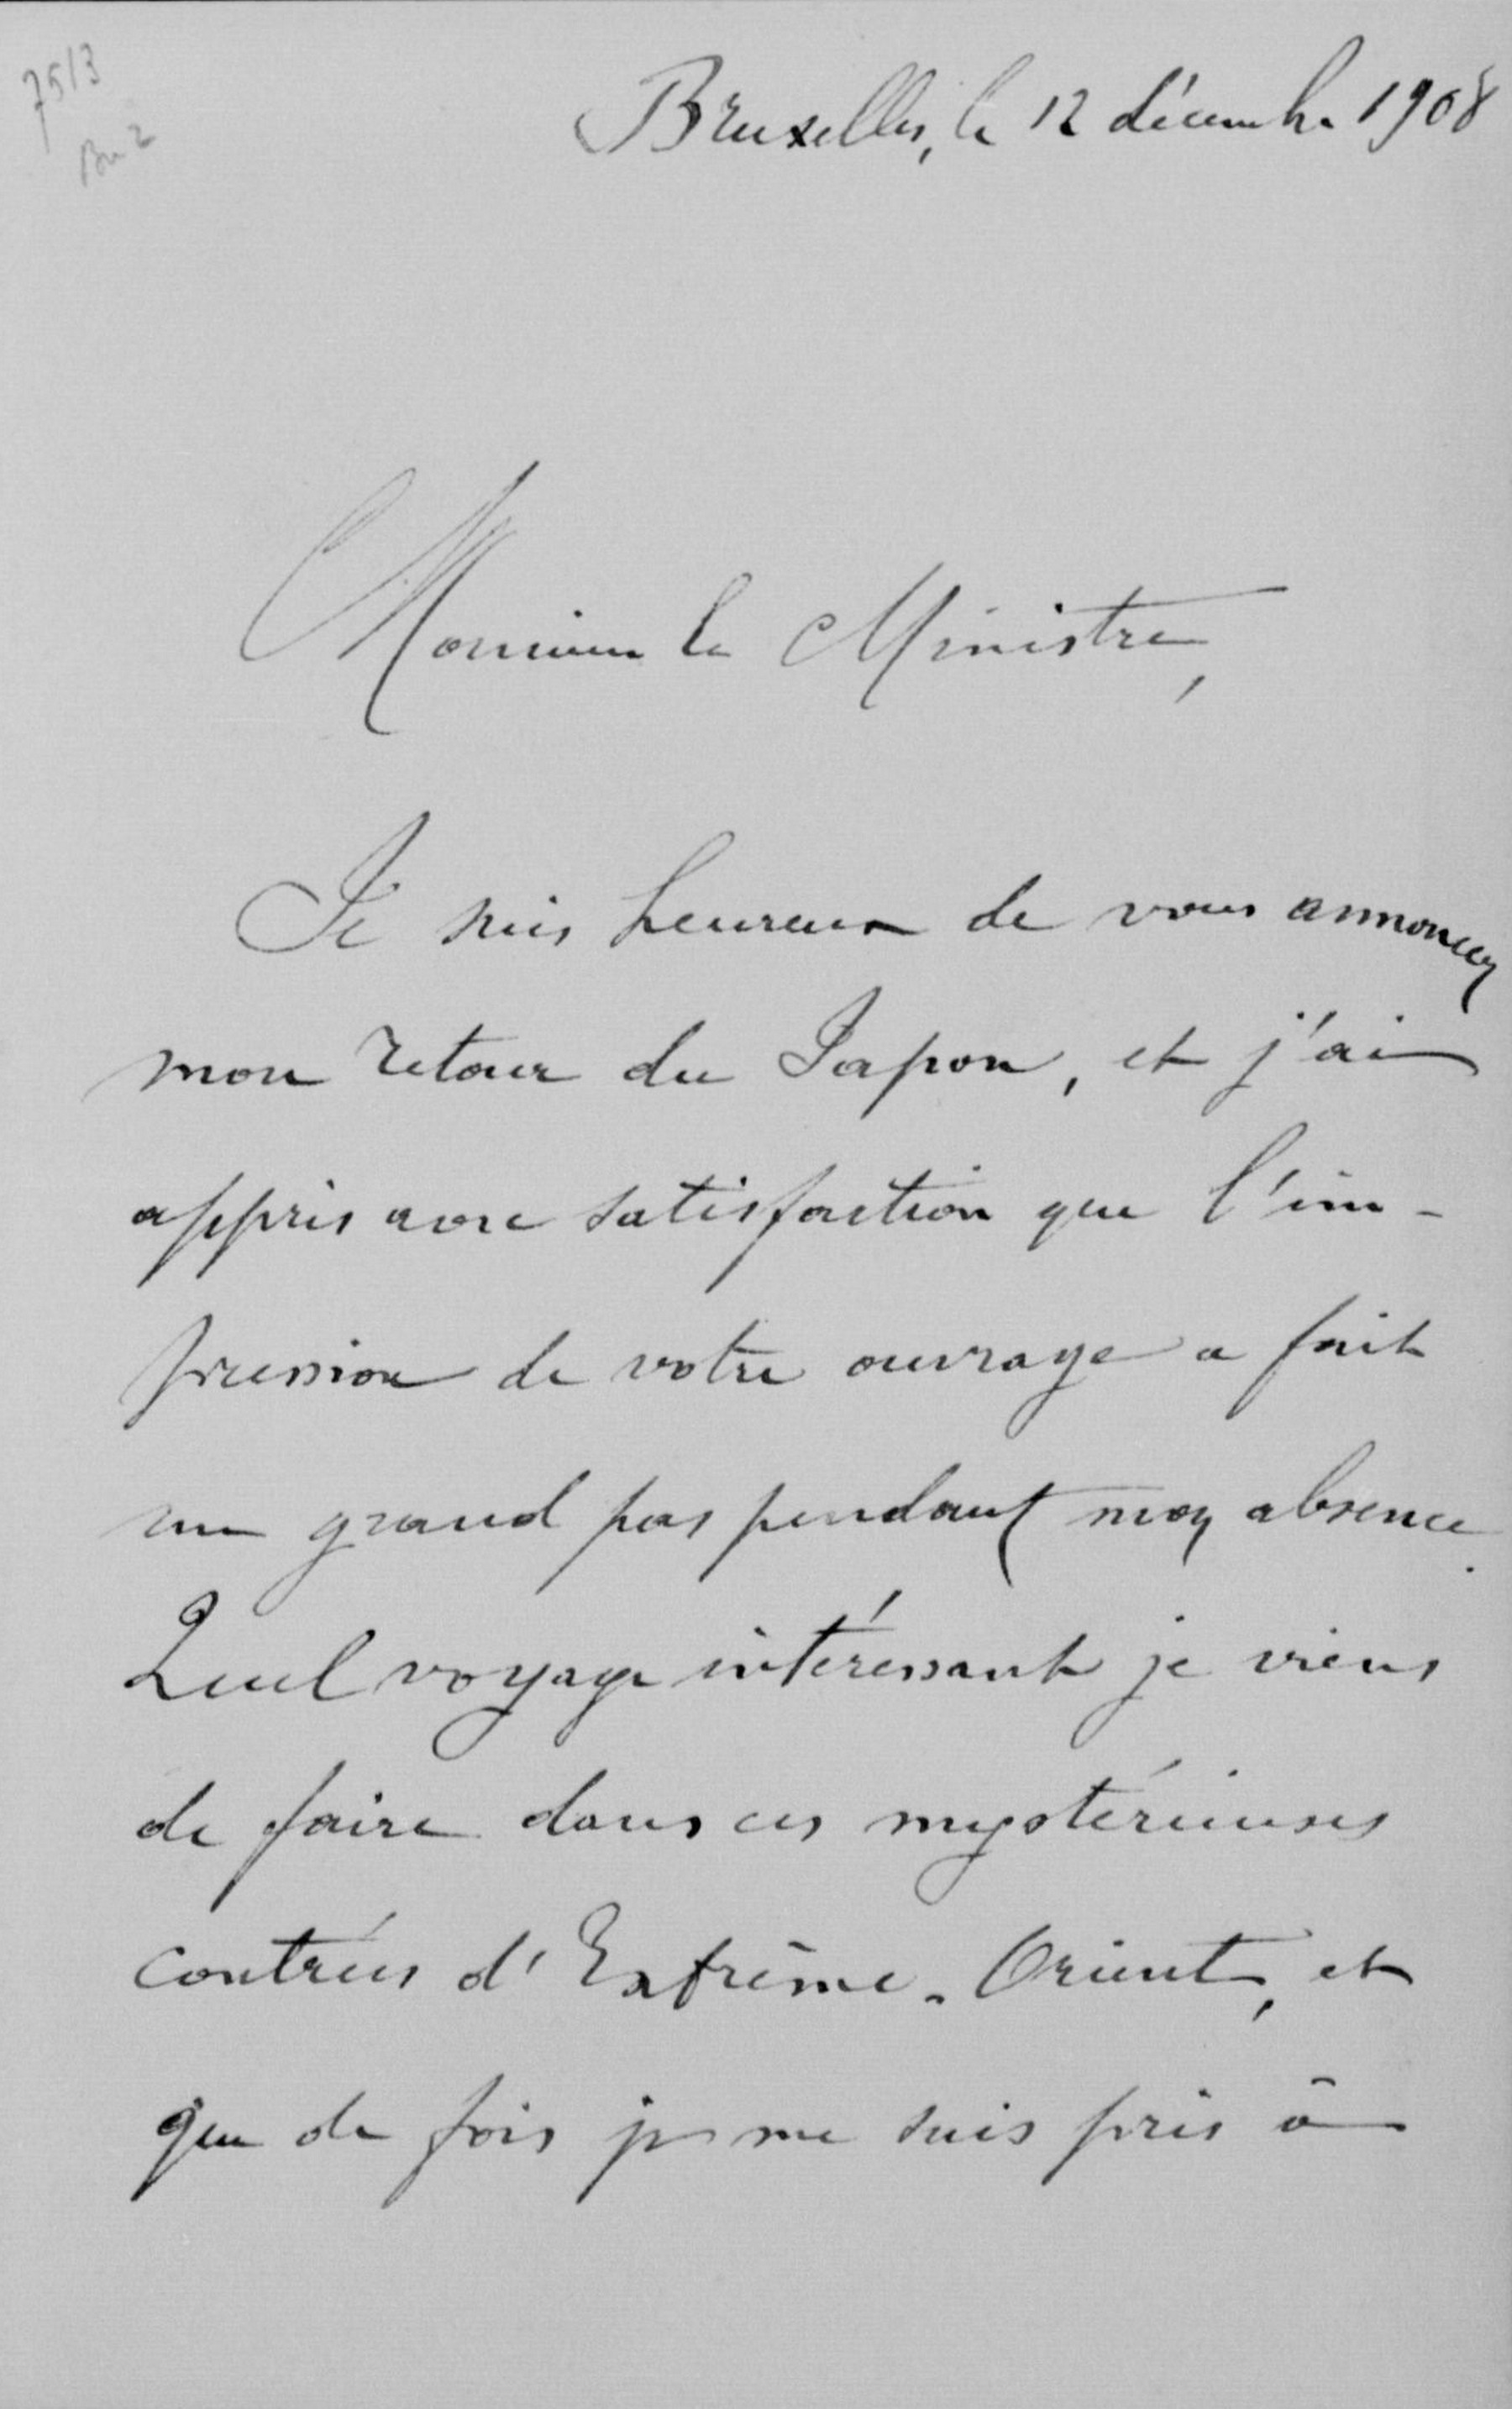 7513
Bruxelles, le 12 décembre 1908
Monsieur le Ministre,
Je suis heureux de vous annoncer
mon retour du Japon, et j'ai
appris avec satisfaction que l'im-
pression de votre ouvrage a fait
un grand pas pendant mon absence.
Quel voyage intéressant je viens
de faire dans ces mystérieuses
contrées d'Extrême-Orient, et
que de fois je me suis pris à